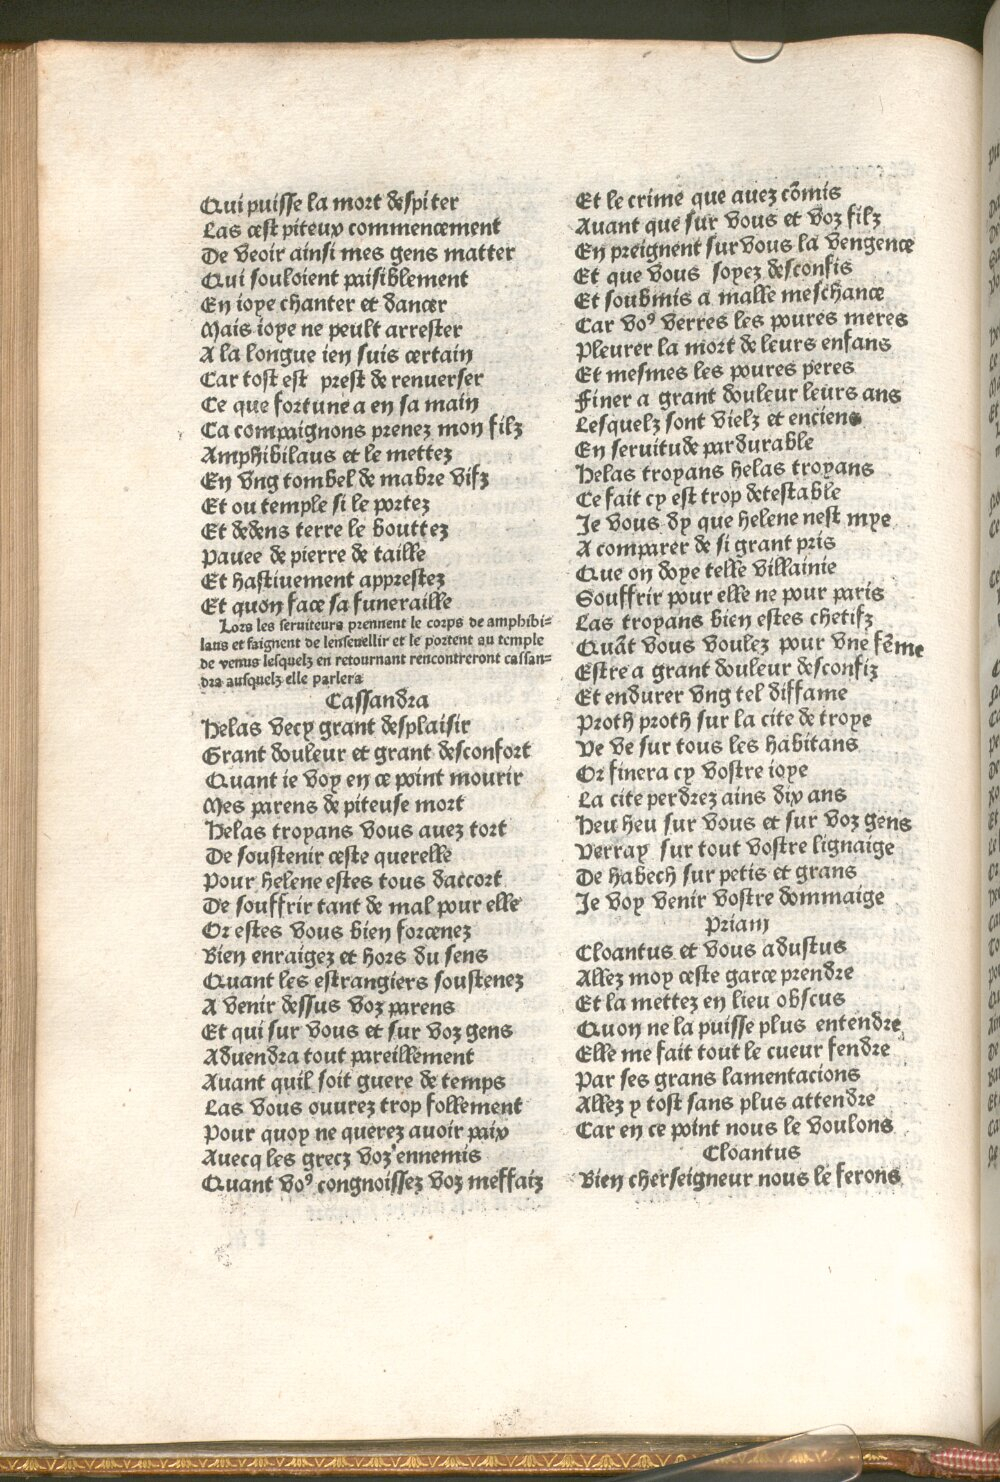 Qui puisse la mort despiter
Las cest piteux commencement
De veoir ainsi mes gens matter
Qui souloient paisiblement
En ioye chanter et dancer
Mais ioye ne peult arrester
A la longue ien suis certain
Car tost est prest de renuerser
Ce que fortune a en sa main
Ca compaignons prenez mon filz
Amphibilaus et le mettez
En vng tombel de mabre visz
Et ou temple si le portez
Et dedens terre le bouttez
Pauee de pierre de taille
Et hastiuement apprestez
Et quon face sa funeraille
Lors les seruiteurs prennent le corps de amphibi=
laus et faignent de lenseuellir et le portent au temple
de venus lesquelz en retournant rencontreront cassan=
dra ausquelz elle parlera
Cassandra
Helas vecy grant desplaisir
Grant douleur et grant desconfort
Quant ie voy en ce point mourir
Mes parens de piteuse mort
Helas troyans vous auez tort
De soustenir ceste querelle
Pour helene estes tous daccort
De souffrir tant de mal pour elle
Or estes vous bien forcenez
Bien enraigez et hors du sens
Quant les estrangiers soustenez
A venir dessus voz parens
Et qui sur vous et sur voz gens
Aduendra tout pareillement
Auant quil soit guere de temps
Las vous ouurez trop follement
Pour quoy ne querez auoir paix
Auecq les grecz voz ennemis
Quant voꝰ congnoissez voz meffaiz
Et le crime que auez cõmis
Auant que sur vous et voz filz
En preignent sur vous la vengence
Et que vous soyez desconfis
Et soubmis a malle meschance
Car voꝰ verres les poures meres
Pleurer la mort de leurs enfans
Et mesmes les poures peres
Finer a grant douleur leurs ans
Lesquelz sont vielz et enciens
En seruitude pardurable
Helas troyans helas troyans
Ce fait cy est trop detestable
Je vous dy que helene nest mye
A comparer de si grant pris
Que on doye telle villainie
Souffrir pour elle ne pour paris
Las troyans bien estes chetifz
Quãt vous voulez pour vne fẽme
Estre a grant douleur desconfiz
Et endurer vng tel diffame
Proth proth sur la cite de troye
Ve ve sur tous les habitans
Or finera cy vostre ioye
La cite perdrez ains dix ans
Heu heu sur vous et sur voz gens
Verray sur tout vostre lignaige
De habech sur petis et grans
Je voy venir vostre dommaige
Priam
Cloantus et vous adustus
Allez moy ceste garce prendre
Et la mettez en lieu obscus
Quon ne la puisse plus entendre
Elle me fait tout le cueur fendre
Par ses grans lamentacions
Allez y tost sans plus attendre
Car en ce point nous le voulons
Cloantus
Bien cher seigneur nous le ferons